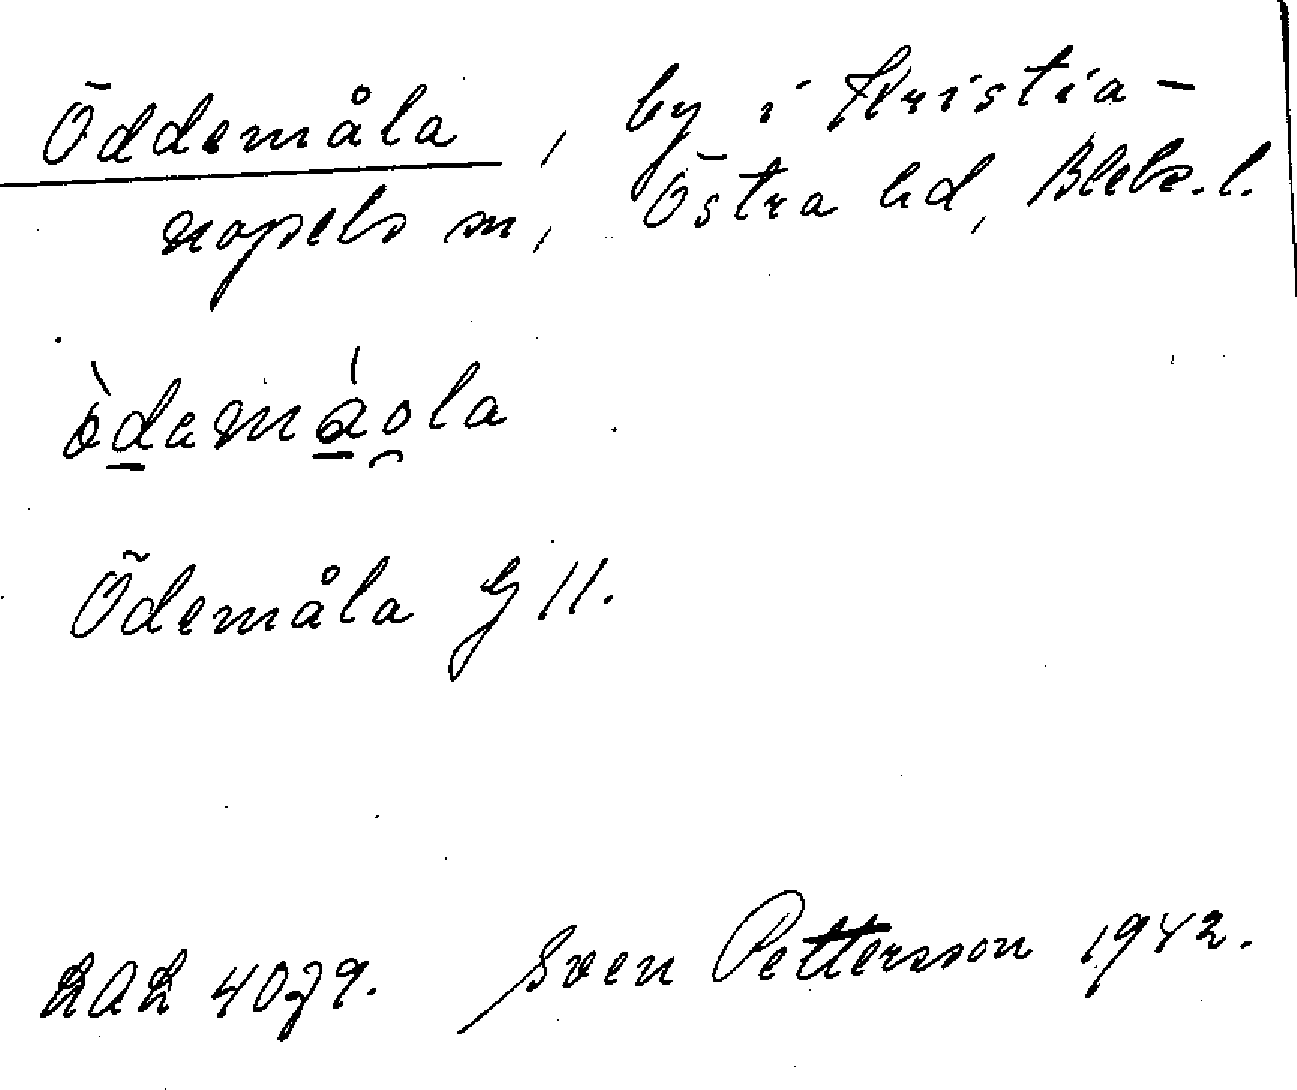 Öddemåla, by i Kristia-
nopels sn, Östra hd, Blek. l.
òdamáola
Ödemåla G 11.
LAL 4079. Sven Pettersson 1942.